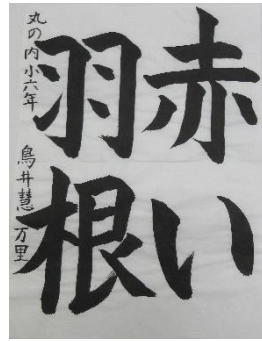 赤い
羽根
丸の内小六年
鳥井慧万里